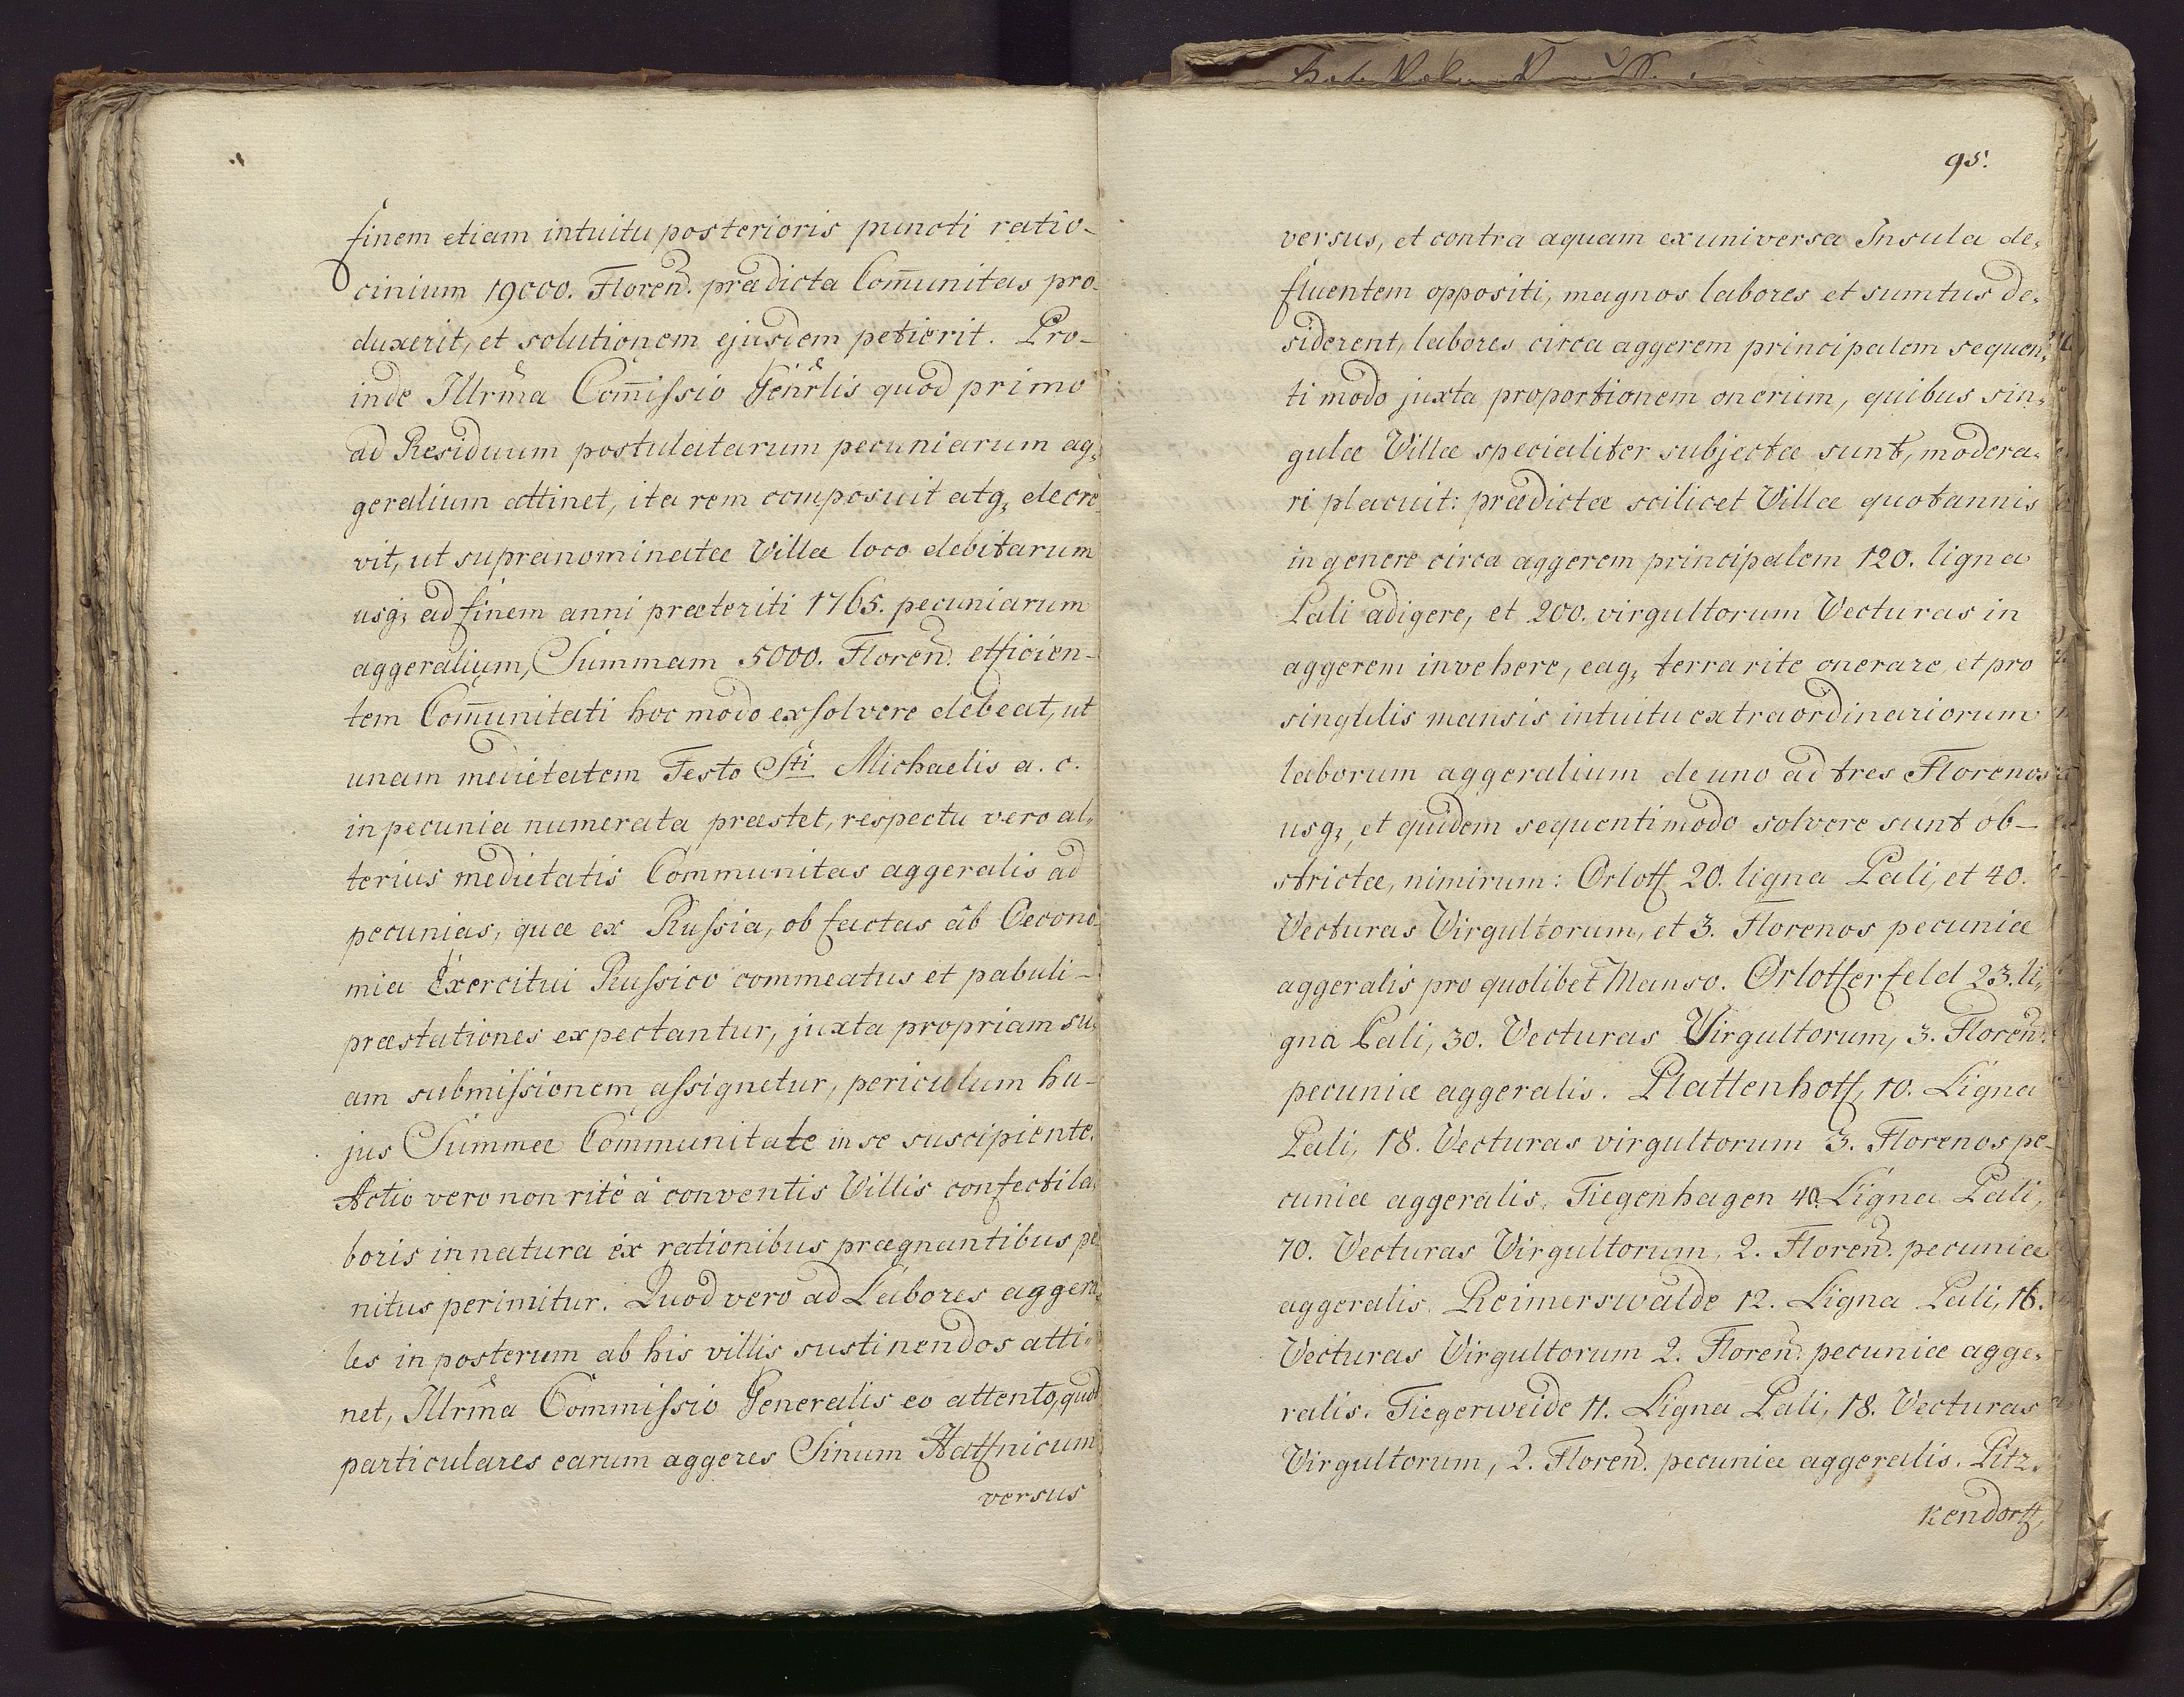 finem etiam intuitu posterioris puncti ratio-
cinium 19000. Floren. prædicta Com̄unitas pro-
duxerit, et solutionem ejusdem petierit. Pro-
inde Illrm̃a Com̄iſsio Gen̄rlis quod primo
ad Residuum postulatarum pecuniarum ag,
geralium attinet, ita rem composuit atq, decre-
vit, ut supranominatæ Villæ loco debitarum
usq, ad finem anni præteriti 1765. pecuniarum
aggeralium, Summam 5000. Floren. efficien-
tem Com̄unitati hoc modo exſolvere debeat, ut
unam medietatem Festo Sti Michaelis a. c.
in pecunia numerata præstet, respectu vero al,
terius medietatis Communitas aggeralis ad
pecunias, quæ ex Ruſsia, ob factas ab Oecono-
mia Exercitui Ruſsico commeatus et pabuli-
præstationes expectantur, juxta propriam su,
am submiſsionem aſsignetur, periculum hu-
jus Summæ Communitate in se suscipiente.
Actio vero non rité á conventis Villis confecti la,
boris in natura éx rationibus prægnantibus pe-
nitus perimitur. Quod vero ad Labores aggera,
les in posterum ab his villis sustinendos atti-
net, Illrm̃a Commiſsio Generalis eo attento, quod
particulares earum aggeres Sinum Haffnicum
versus
95.
versus, et contra aquam ex universa Insula de,
fluentem oppositi, magnos labores et sumtus de,
siderent, labores circa aggerem principalem sequen,
ti modo juxta proportionem onerum, quibus sin,
gulæ Villæ specialiter subjectæ sunt, modera,
ri placuit: prædictæ scilicet Villæ quotannis
in genere circa aggerem principalem 120. ligna
Pali adigere, et 200. virgultorum Vecturas in
aggerem invehere, eaq, terra rite onerare, et pro
singulis mansis intuitu extraordinariorum
laborum aggeralium de uno ad tres Florenos
usq, et quidem sequenti modo solvere sunt ob-
strictæ, nimirum: Orloff 20. ligna Pali, et 40.
Vecturas Virgultorum, et 3. Florenos pecuniæ
aggeralis pro quolibet Manso. Orlofferfeld 23. li,
gna Pali, 30. Vecturas Virgultorum, 3. Floren.
pecuniæ aggeralis. Plattenhoff, 10. Ligna
Pali, 18. Vecturas virgultorum 3. Florenos pe-
cuniæ aggeralis. Tiegenhagen 40. Ligna Pali,
70. Vecturas Virgultorum, 2. Floren. pecuniæ
aggeralis. Reimerswalde 12. Ligna Pali, 16.
Vecturas Virgultorum 2. Floren. pecuniæ agge,
ralis. Tiegerweide 11. Ligna Pali, 18. Vecturas
Virgultorum, 2. Floren. pecuniæ aggeralis. Pitz,
kendorff,